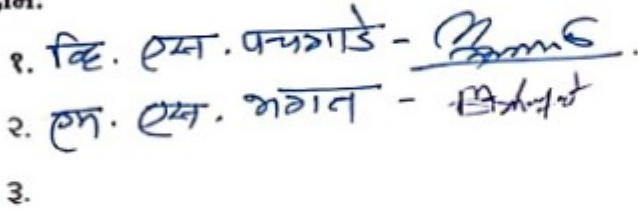 १. व्हि. एस. पचगाडे -
२. एम. एस. भगत -
३.